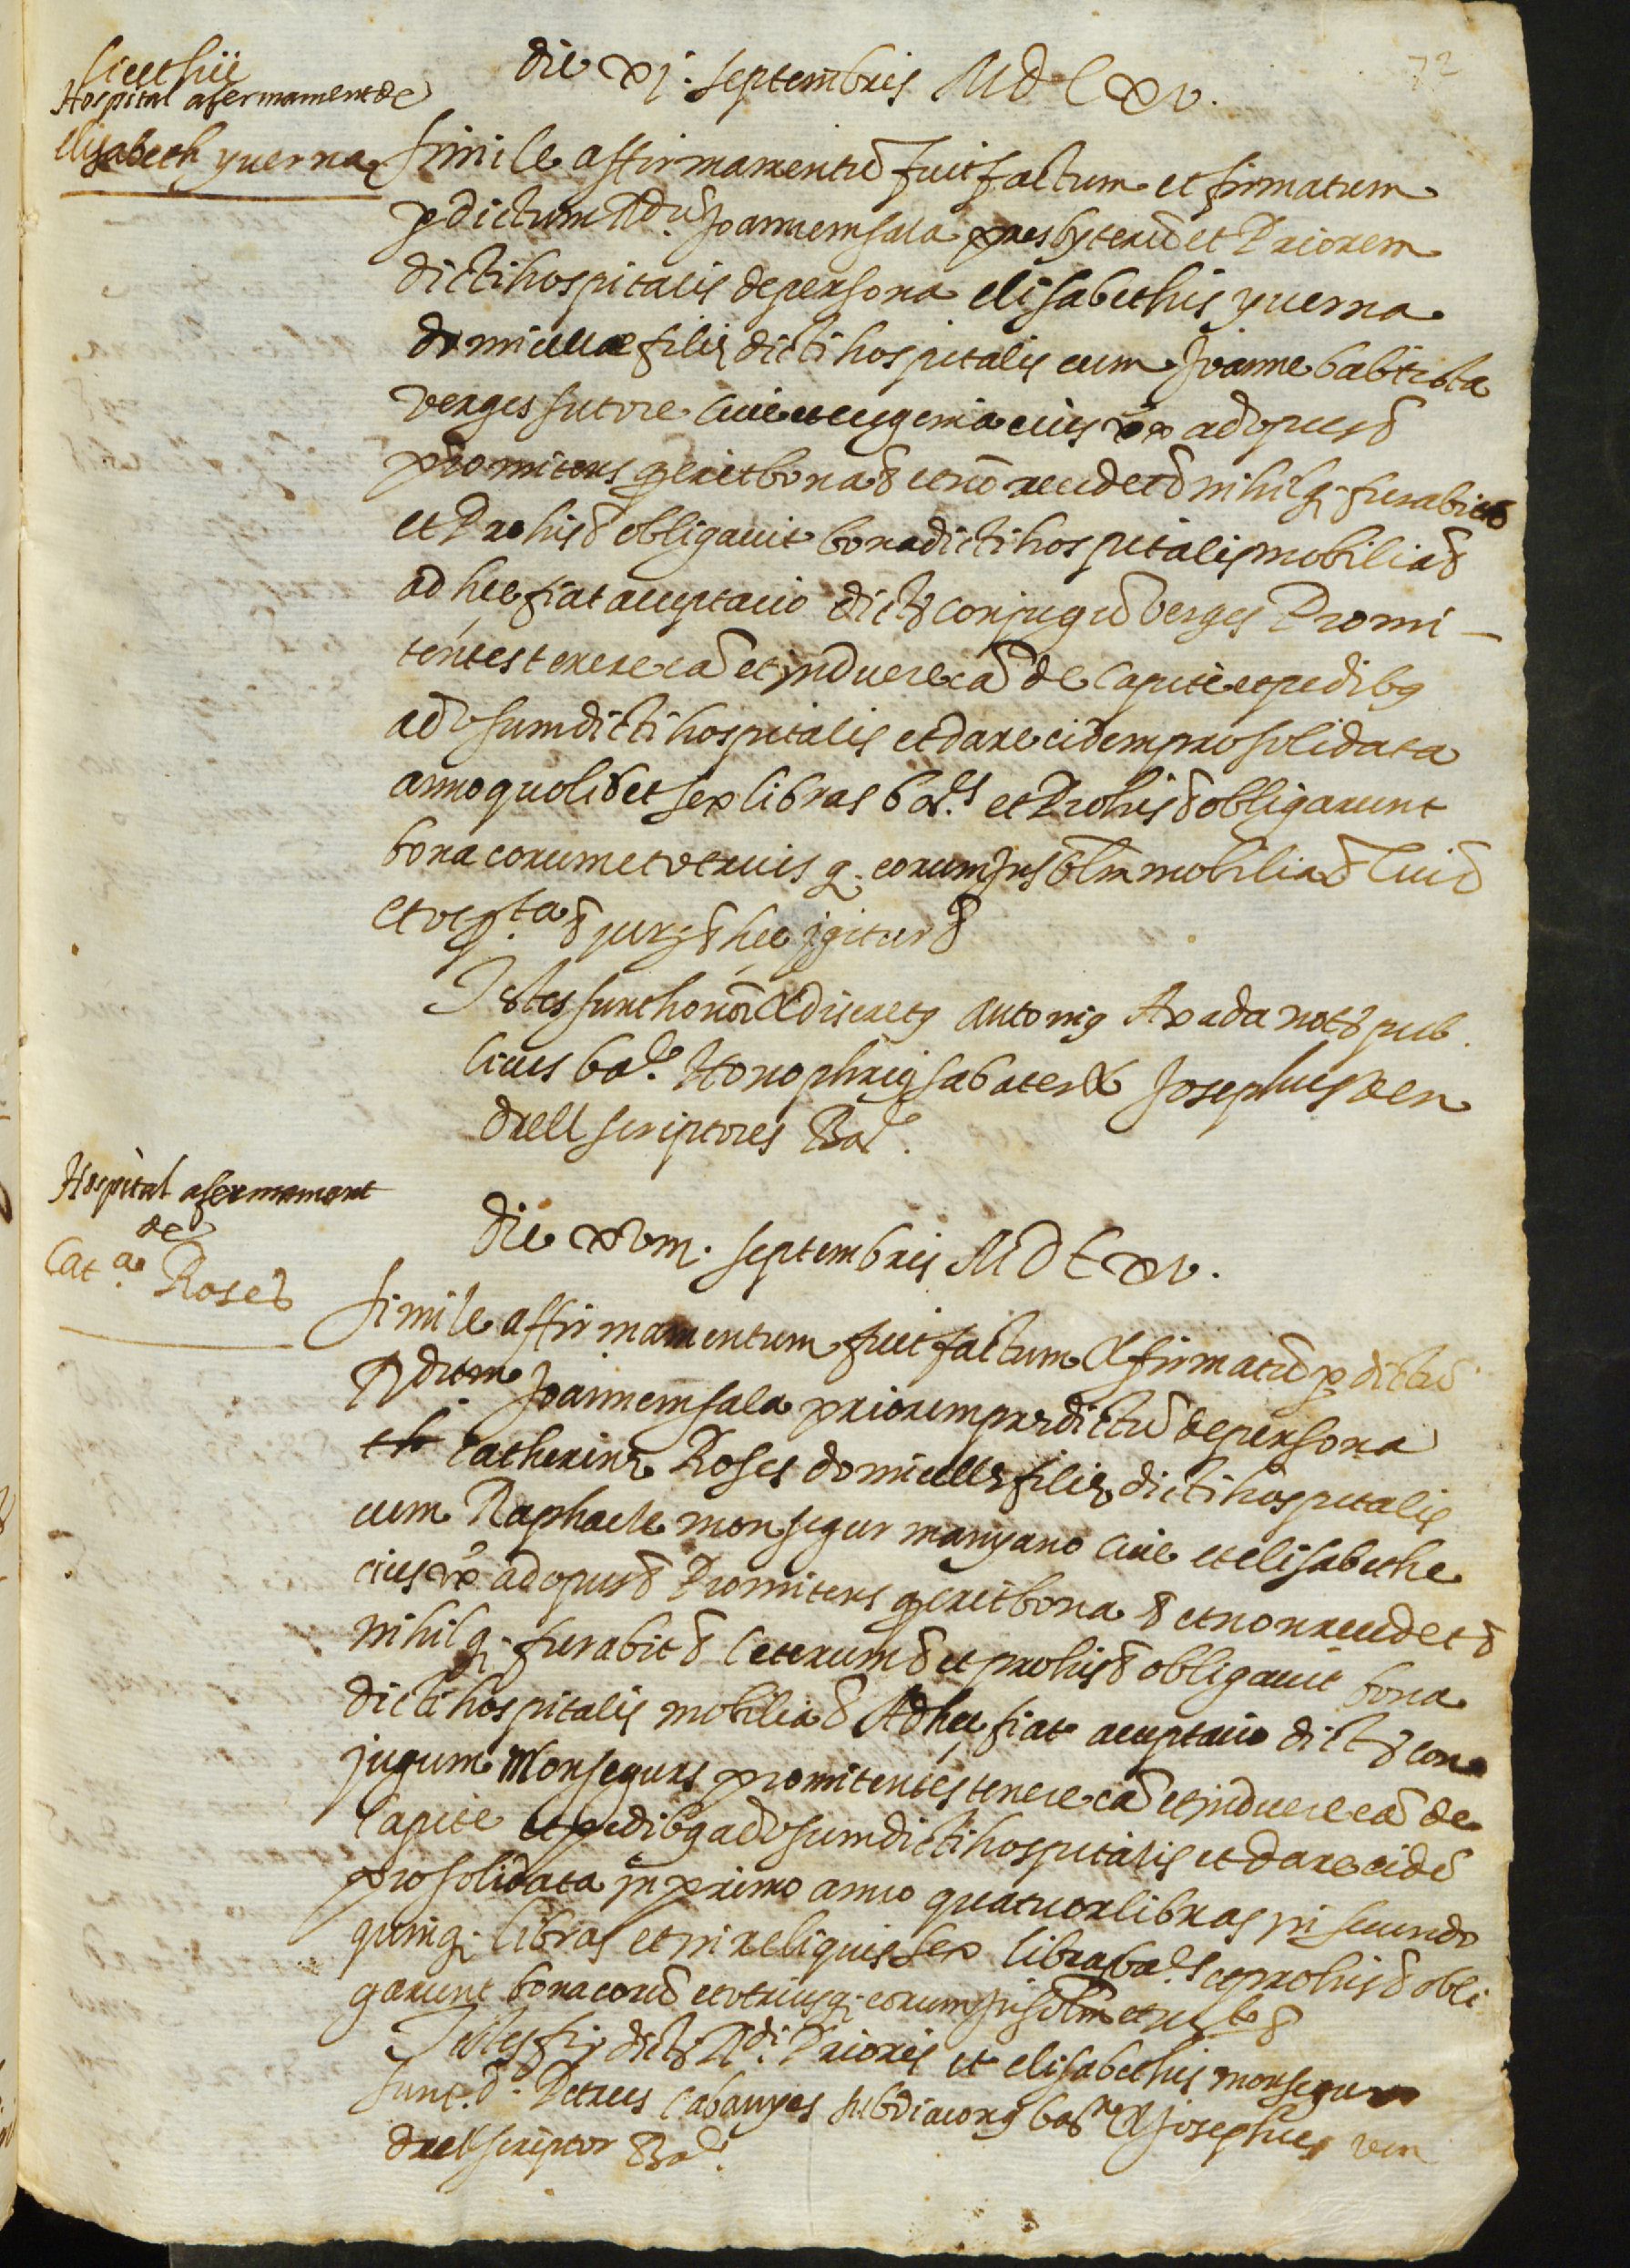 72
die xj. septembris MDLxv.
Hospital afermament de
Elisabeth yverna
Simile affirmamentũ fuit factum et firmatum
p dictum Rdũ Joannem sala presbyterũ et Priorem
dicti hospitalis de persona elisabethis yverna
domicellae filię dicti hospitalis cum Joanne babtista
verges sutore cive et eugenia eius vx ad opus &
promitens q erit bona & et nõ recedet & nihilq; furabit &
et Pro his & obligavit bona dicti hospitalis mobilia &
ad hec fiat acceptacio dictor conjugũ verges Promi-
tentes tenere eã et induere eã de capite et pedibꝰ
ad vsum dicti hospitalis et dare eidem pro solidata
anno quolibet sex libras bar.s et Pro his & obligarunt
bona eorum et vtriusq; eorum insolm mobilia &
& jur & hec igitur &
Testes sunt honor & discretꝰ Antoniꝰ Axada not pub.
civis bar. Honophriꝰ sabater & Josephus ven
drell scriptores Bar.
Hospital afermament
de
Cat.a Roses
die xvm. septembris MDLxv.
Simile affirmamentum fuit factum & firmatũ p dictũ
Rdum Joannem sala priorem prędictũ de persona
catherinę Roses domicellę filię dicti hospitalis
cum Raphaele monsegur manyano cive et elisabethe
eius vx ad opus & Promitens q erit bona & et non recedet &
nihilq; furabit & ceterum & et pro his & obligavit bona
dicti hospitalis mobilia & Ad hec fiat acceptacio dictor con
jugum Monsegurs promitentes tenere eã et induere eã de
capite et pedibꝰ ad vsum dicti hospitalis et dare eidẽ
pro solidata in primo anno quatuor libras in secundo
quinq; libras et in reliquis sex libras bar.s et pro his & obli
garunt bona eorũ et vtriusq; eorum insolm &
Testes firę dictor Rdi. Prioris et elisabethis monsegur
sunt d. Petrus Cabanyes subdiaconꝰ bar & Josephus ven
drell scriptor Bar.